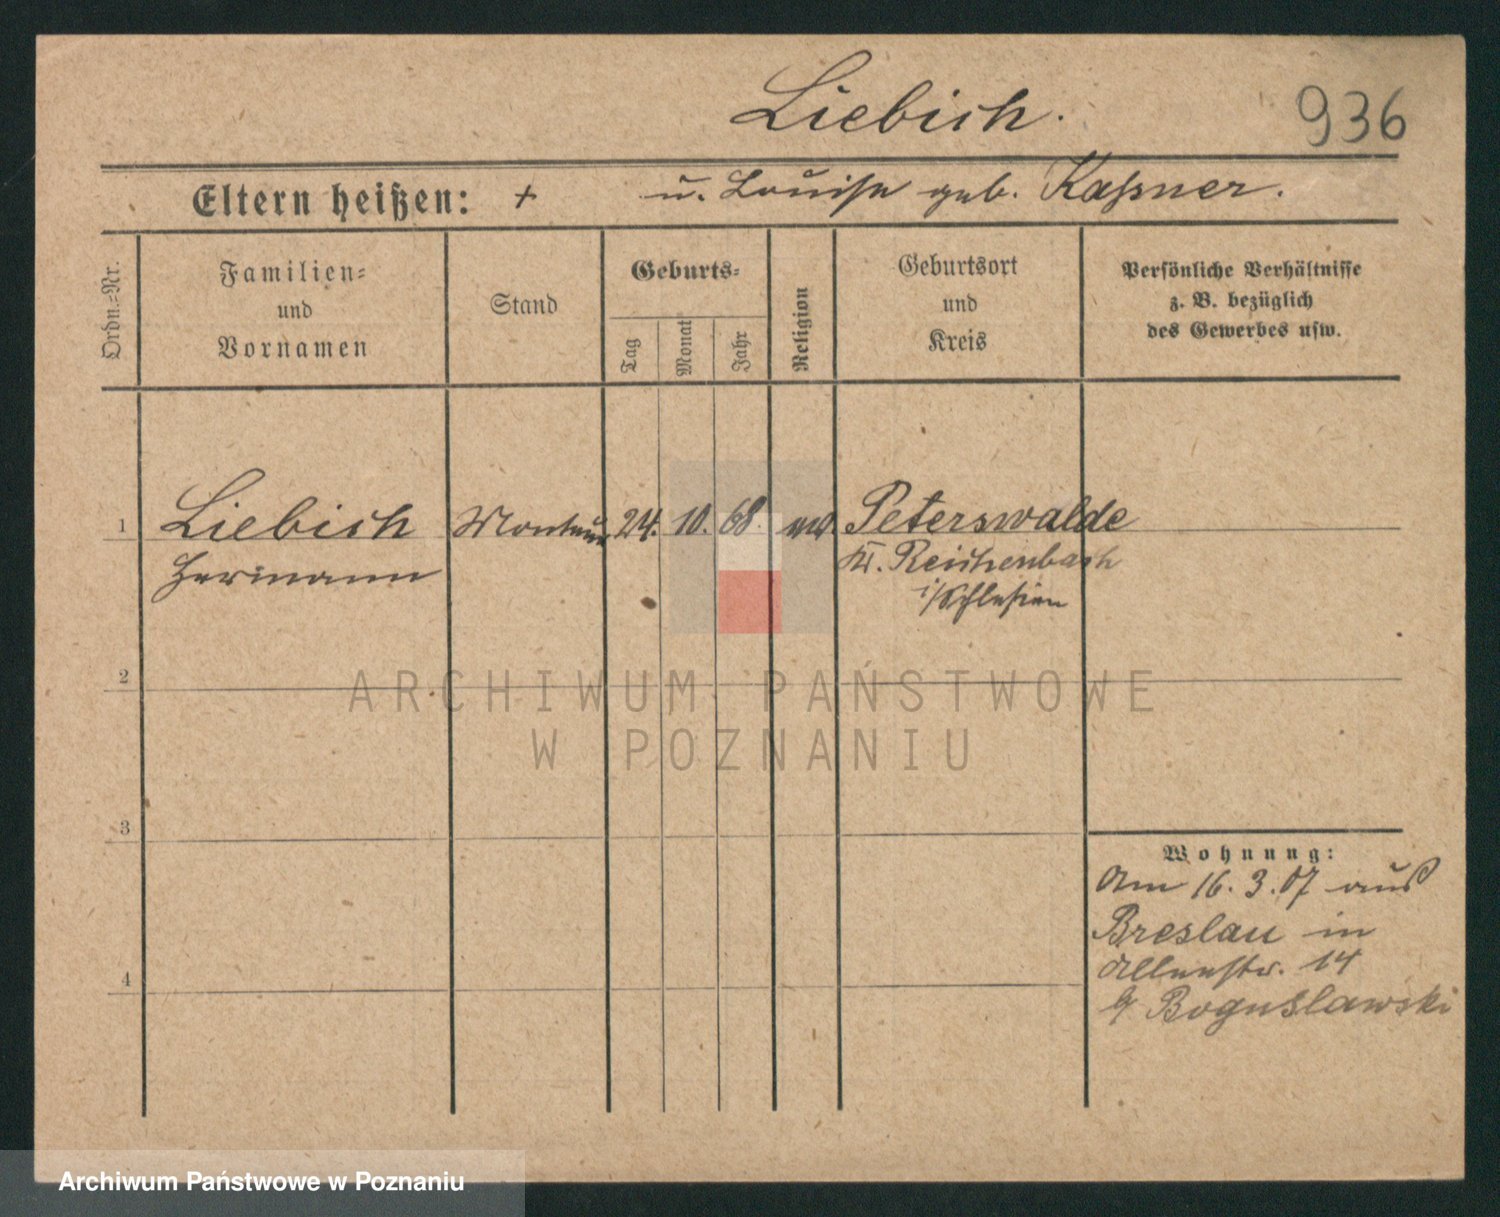 Liebich.
936
Eltern heißen: + u. Louise geb. Kaßner.
Ordn.=Nr.
Familien=
und
Vornamen
Stand
Geburts=
Tag
Monat
Jahr
Religion
Geburtsort
und
Kreis
Persönliche Verhältnisse
z. B. bezüglich
des Gewerbes usw.
1 Liebich Monteur 24. 10. 68. Peterswalde
Hermann Kr. Reichenbach
i/Schlesien
2
ARCHIWUM PAŃSTWOWE
W POZNANIU
3
Wohnung:
Am 16. 3. 07 aus
Breslau in
14
4
b/ Boguslawski
Archiwum Państwowe w Poznaniu